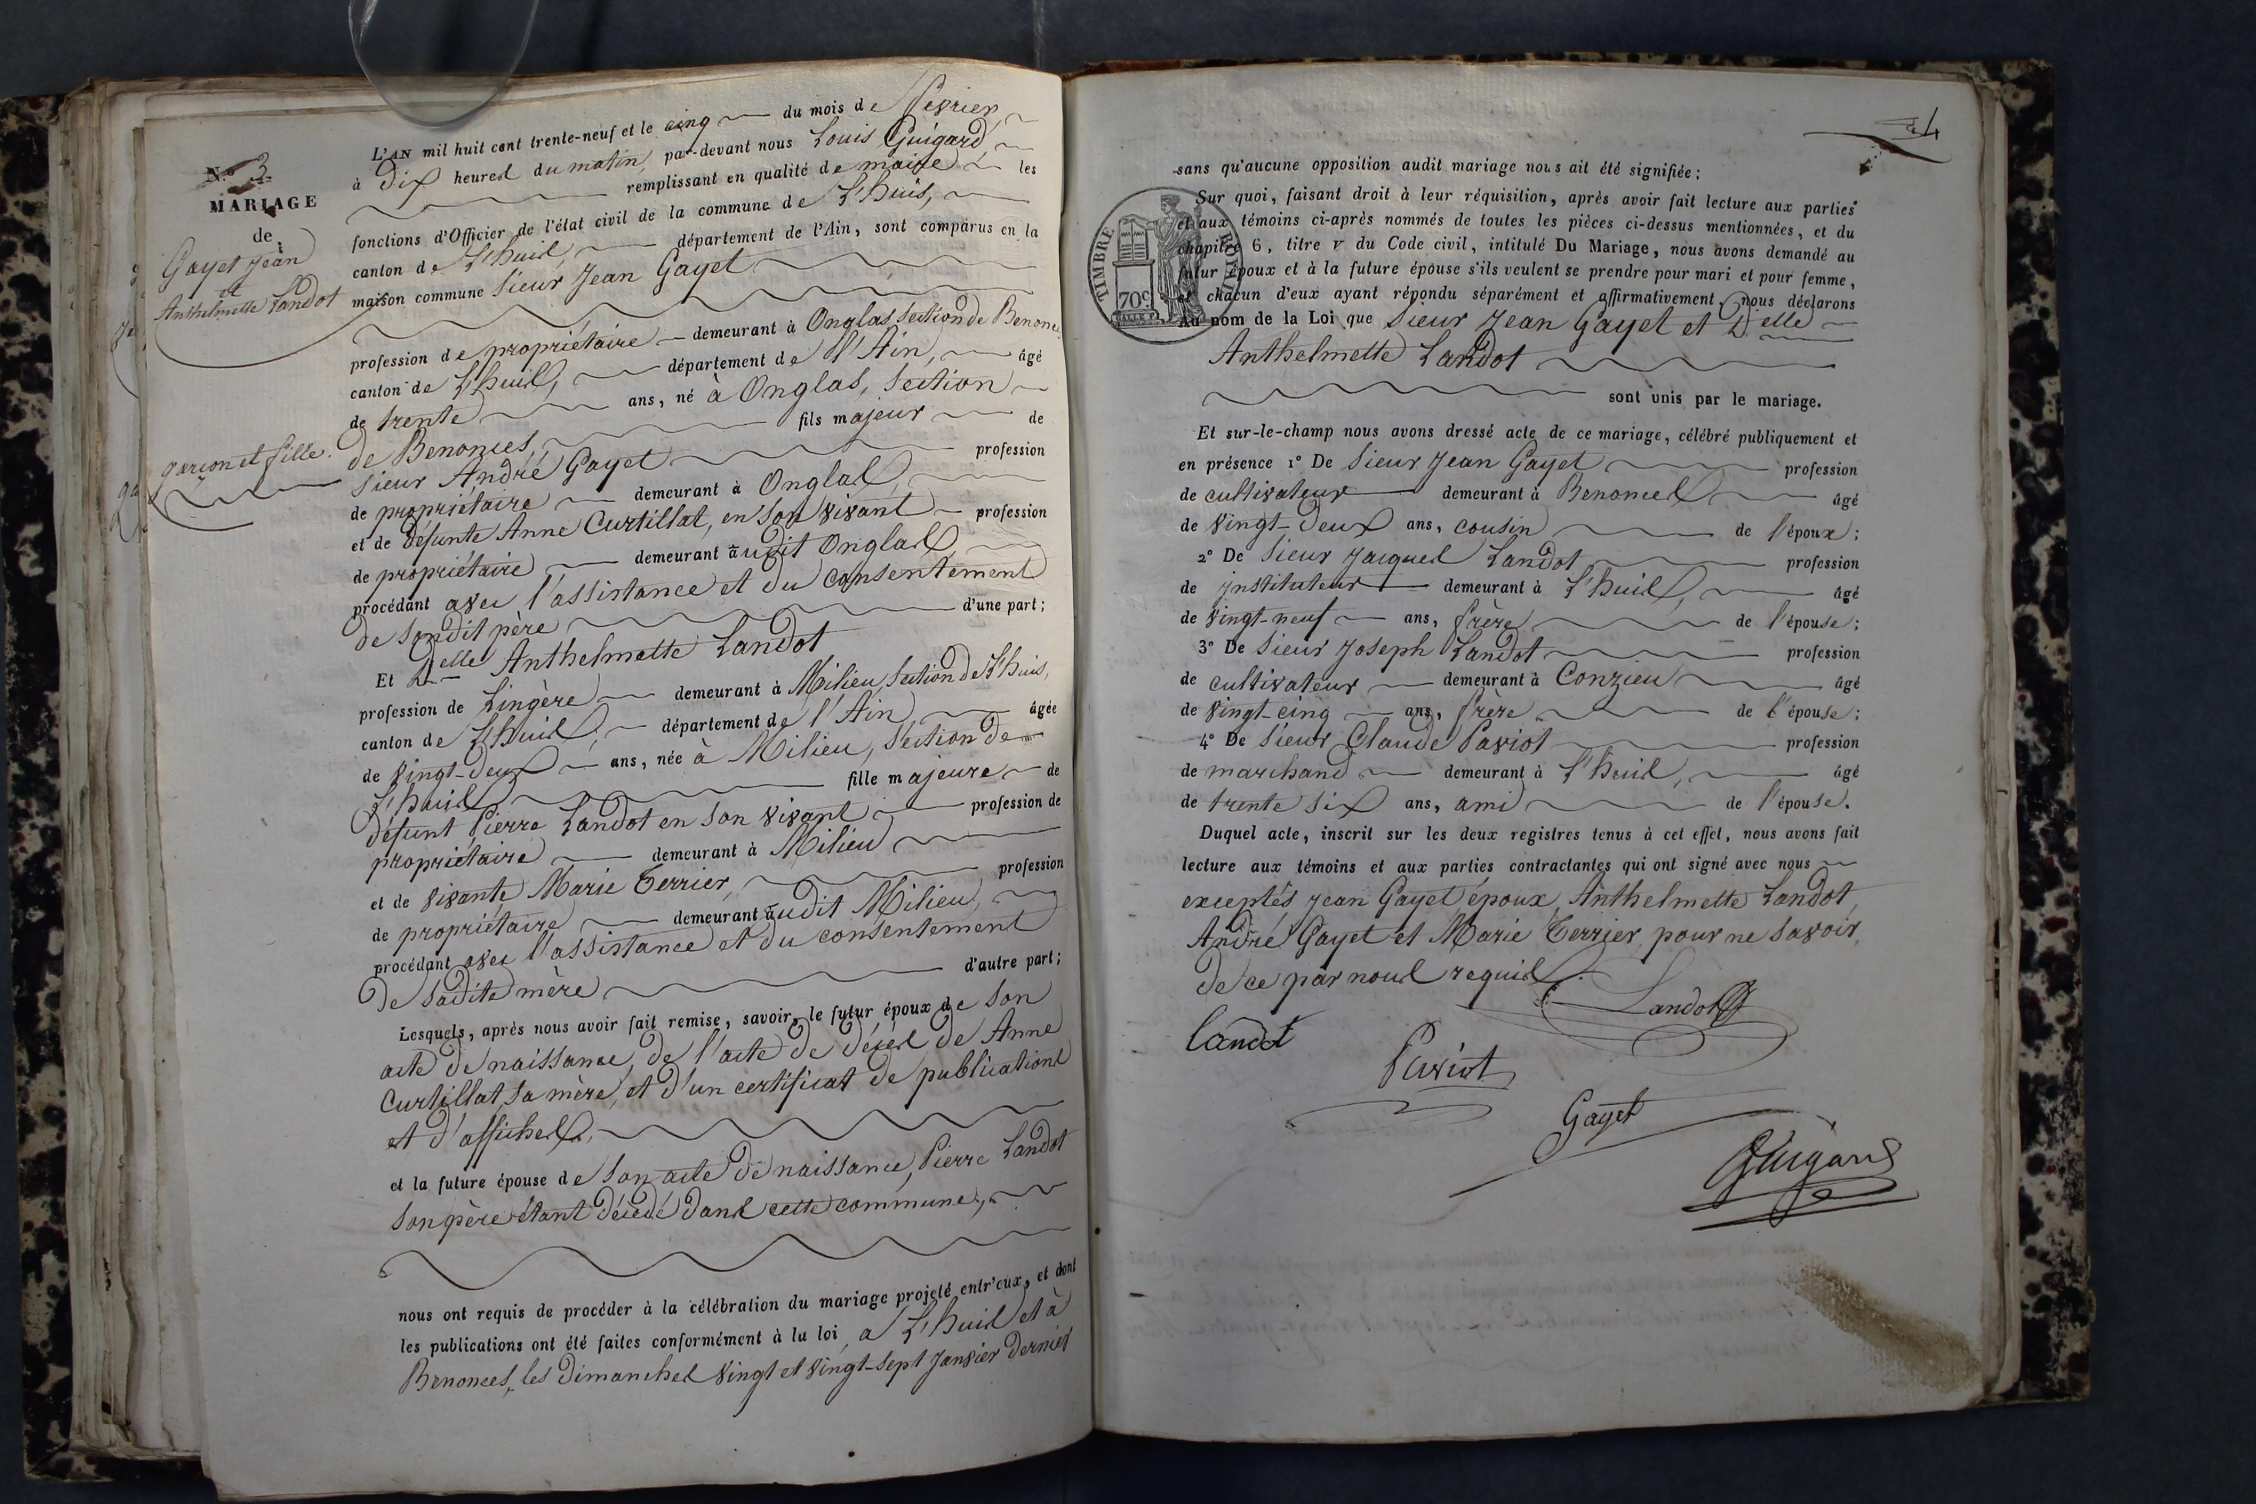 N.º 3.
MARIAGE
de
Gayet Jean
et
Anthelmette Landot
garçon et fille.
L'AN mil huit cent trente-neuf et le cinq du mois de Février,
à Dix heures du matin, par-devant nous Louis Guigard,
remplissant en qualité de maire les
fonctions d'Officier de l'état civil de la commune de L'huis,
canton de L'huis, département de l'Ain, sont comparus en la
maison commune Sieur Jean Gayet
profession de propriétaire demeurant à Onglas, section de Benonces
canton de L'huis, département de l'Ain, âgé
de trente ans, né à Onglas, section
de Benonces, fils majeur de
Sieur André Gayet profession
de propriétaire demeurant à Onglas,
et de défunte Anne Curtillat, en son vivant profession
de propriétaire demeurant audit Onglas,
procédant avec l'assistance et du consentement
de sondit père d'une part;
Et Delle Anthelmette Landot
profession de Lingère demeurant à Milieu, section de L'huis,
canton de L'huis, département de l'Ain, âgée
de vingt-deux ans, née à Milieu, section de
L'huis, fille majeure de
défunt Pierre Landot en son vivant profession de
propriétaire demeurant à Milieu
et de vivante Marie Terrier, profession
de propriétaire demeurant audit Milieu,
procédant avec l'assistance et du consentement
de sadite mère d'autre part;
Lesquels, après nous avoir fait remise, savoir, le futur époux de son
acte de naissance, de l'acte de décès de Anne
Curtillat, sa mère, et d'un certificat de publications
et d'affiches.
et la future épouse de son acte de naissance, Pierre Landot
son père étant décédé dans cette commune,
nous ont requis de procéder à la célébration du mariage projeté entr'eux, et dont
les publications ont été faites conformément à la loi, à L'huis et à
Benonces, les dimanches vingt et vingt-sept janvier dernier
sans qu'aucune opposition audit mariage nous ait été signifiée;
Sur quoi, faisant droit à leur réquisition, après avoir fait lecture aux parties
et aux témoins ci-après nommés de toutes les pièces ci-dessus mentionnées, et du
chapitre 6, titre v du Code civil, intitulé Du Mariage, nous avons demandé au
futur époux et à la future épouse s'ils veulent se prendre pour mari et pour femme,
et chacun d'eux ayant répondu séparément et affirmativement, nous déclarons
Au nom de la Loi que Sieur Jean Gayet et Delle
Anthelmette Landot
sont unis par le mariage.
TIMBRE ROYAL
70c
Et sur-le-champ nous avons dressé acte de ce mariage, célébré publiquement et
en présence 1º De Sieur Jean Gayet profession
de cultivateur demeurant à Benonces âgé
de vingt-deux ans, cousin de l'époux;
2º De Sieur Jacques Landot profession
de instituteur demeurant à L'huis, âgé
de vingt-neuf ans, frère de l'épouse;
3º De Sieur Joseph Landot profession
de cultivateur demeurant à Conzieu âgé
de vingt-cinq ans, frère de l'épouse;
4º De Sieur Claude Paviot profession
de marchand demeurant à L'huis, âgé
de trente six ans, ami de l'épouse.
Duquel acte, inscrit sur les deux registres tenus à cet effet, nous avons fait
lecture aux témoins et aux parties contractantes qui ont signé avec nous
exceptés Jean Gayet époux, Anthelmette Landot,
André Gayet et Marie Terrier, pour ne savoir,
de ce par nous requis.
Landot
Landot
Paviot
Gayet
Guigard